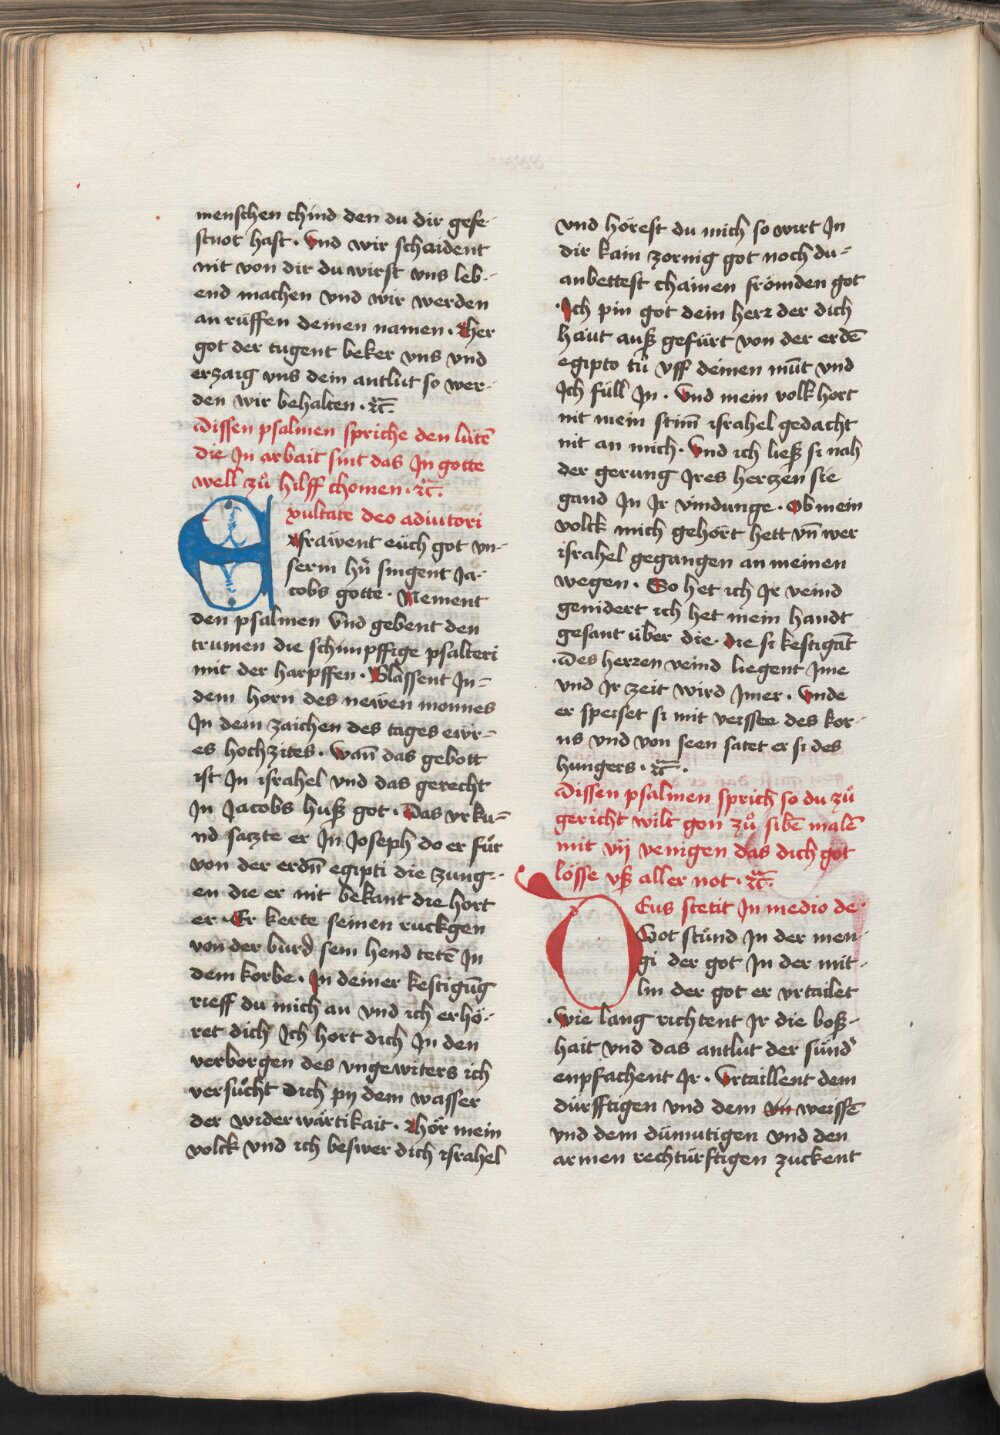 menschen chind den du dir gefe-
stnot hast · Vnd wir schaident
nit von dir du wirst vns leb-
end machen vnd wir werden
an rüffen deinen namen · Her
got der tugent beker vns vnd
erzaig vns dein antlut so wer-
den wir behalten · ꝛc̄.
Dissen psalmen spriche den lütē
die Jn arbait sint das Jn gotte
well zů hilff chomen · ꝛc̄.
Exultate deo adiutori
Fräwent eüch got vn-
serm hr̄n singent Ja-
cobs gotte · Nement
den psalmen Vnd gebent den
trumen die schimpffige psalteri
mit der harpffen · Blassent Jn-
dem horn des newen monnes
Jn dem zaichen des tages ewr-
es hochzites · Wan̄ das gebott
ist Jn israhel vnd das gerecht
Jn Jacobs huß got · Das vrku-
nd sarzte er Jn Joseph do er fůr
von der erdn̄ egipti die zung-
en die er nit bekant die hort
er · Er kerte seinen ruckgen
von der burd sein hend tetē Jn
dem korbe · Jn deiner kestigūg
rieff du mich an vnd ich erhö-
ret dich Ich hort dich Jn den
verborgen des vngewiters ich
versůcht dich pÿ dem wasser
der widerwärtikait · Hör mein
volck vnd ich beswer dich israhel
vnd hörest du mich so wirt Jn
dir kain zornig got noch du-
anbettest chainen frömden got
· Ich pin got dein herr der dich
haut auß gefürt von der erdē
egipto tů vff deinen můt vnd
Ich füll Jn · Vnd mein volk hort
nit mein stim̄ israhel gedacht
nit an mich · Vnd ich ließ si nah
der gerung Jres hertzen sie
gand Jn Jr vindunge · Ob mein
volck mich gehört hett vn̄ wer
israhel gegangen an meinen
wegen · So het ich Jr veind
genidert ich het mein handt
gesant über die · die si kestigāt
· Des herren veind liegent Jme
vnd Jr zeit wird Jmer · Vnde
er speiset si mit veisste des kor-
ns vnd von seen satet er si des
hungers · ꝛc̄ ·
Dissen psalmen sprich so du zů
gericht wilt gon zů sibē malē
mit vij venigen das dich got
lösse vß aller not · ꝛc̄.
Deus stetit Jn medio de·
Got stůnd Jn der men-
gi der got Jn der mit-
lin der got er vrtailet
· Wie lang richtent Jr die boß-
hait vnd das antlut der sünd'
enpfachent Jr · Vrtaillent dem
dürfftigen vnd dem vn weissē
vnd dem dümutigen vnd den
armen rechtürftigen zuckent